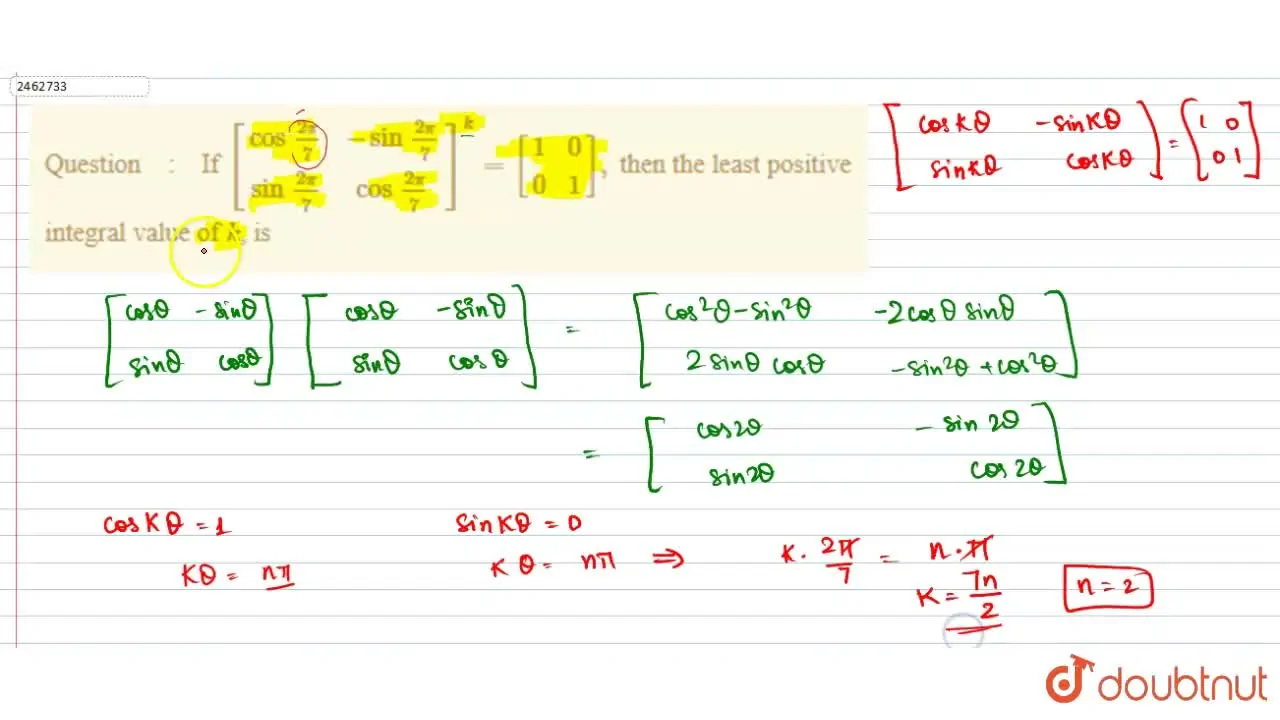 2462733
Question : If [cos 2π/7 -sin 2π/7 sin 2π/7 cos 2π/7]^k = [1 0 0 1], then the least positive
integral value of k, is
[cosKθ -sinKθ sinKθ cosKθ] = [1 0 0 1]
[cosθ -sinθ sinθ cosθ] [cosθ -sinθ sinθ cosθ] = [cos²θ-sin²θ -2cosθ sinθ 2sinθ cosθ -sin²θ+cos²θ]
= [cos2θ -sin2θ sin2θ cos2θ]
cosKθ = 1 sinKθ = 0
Kθ = nπ K θ = nπ ⇒ K. 2π/7 = n.π
K = 7n/2 n = 2
doubtnut